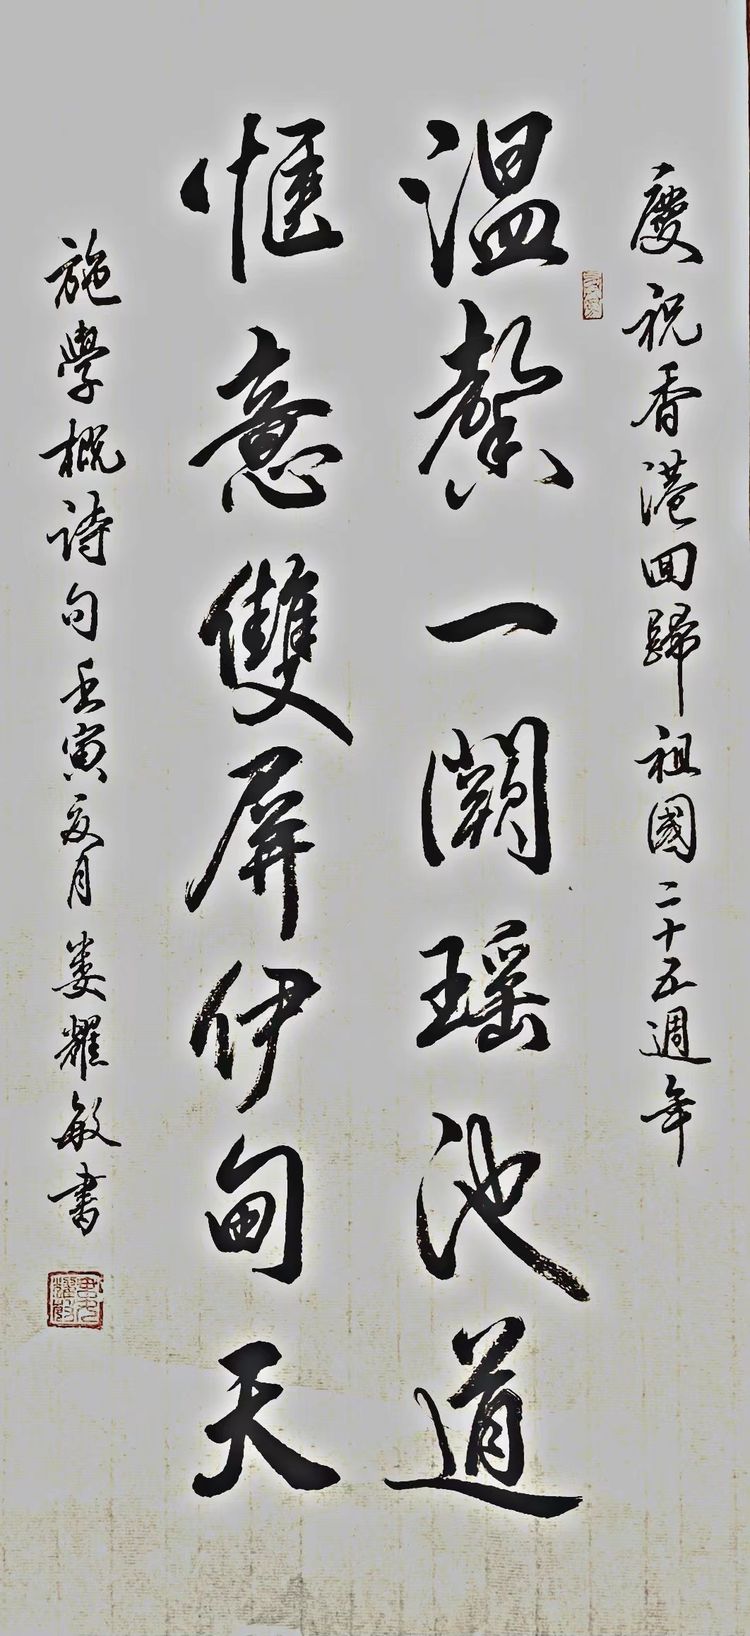 慶祝香港回歸祖國二十五週年
溫馨一闋瑤池道
愜意雙屏伊甸天
施學概詩句壬寅夏月婁耀敏書